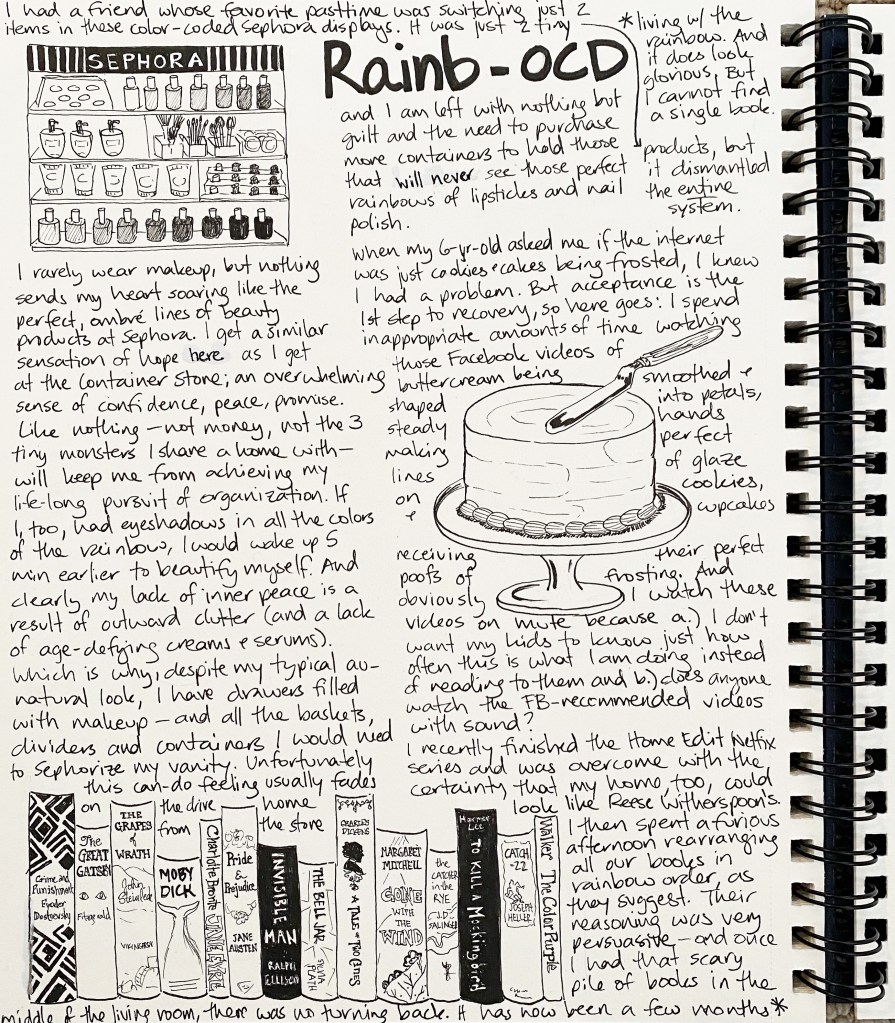 I had a friend whose favorite pasttime was switching just 2
items in these color-coded Sephora displays. It was just 2 tiny
products, but
it dismantled
the entire
system.
SEPHORA
Rainb-OCD
I rarely wear makeup, but nothing
sends my heart soaring like the
perfect, ombré lines of beauty
products at Sephora. I get a similar
sensation of hope here as I get
at the Container Store; an overwhelming
sense of confidence, peace, promise.
Like nothing—not money, not the 3
tiny monsters I share a home with—
will keep me from achieving my
life-long pursuit of organization. If
I, too, had eyeshadows in all the colors
of the rainbow, I would wake up 5
min earlier to beautify myself. And
clearly my lack of inner peace is a
result of outward clutter (and a lack
of age-defying creams & serums).
Which is why, despite my typical au-
natural look, I have drawers filled
with makeup—and all the baskets,
dividers and containers I would need
to sephorize my vanity. Unfortunately
this can-do feeling usually fades
on the drive home
from the store
and I am left with nothing but
guilt and the need to purchase
more containers to hold those
that will never see those perfect
rainbows of lipsticks and nail
polish.
When my 6-yr-old asked me if the internet
was just cookies & cakes being frosted, I knew
I had a problem. But acceptance is the
1st step to recovery, so here goes: I spend
inappropriate amounts of time watching
those Facebook videos of
buttercream being smoothed &
shaped into petals,
steady hands
making perfect
lines of glaze
on cookies,
& cupcakes
receiving their perfect
poofs of frosting. And
obviously I watch these
videos on mute because a.) I don't
want my kids to know just how
often this is what I am doing instead
of reading to them and b.) does anyone
watch the FB-recommended videos
with sound?
I recently finished the Home Edit Netfix
series and was overcome with the
certainty that my home, too, could
look like Reese Witherspoon's.
I then spent a furious
afternoon rearranging
all our books in
rainbow order, as
they suggest. Their
reasoning was very
persuasive—and once
I had that scary
pile of books in the
middle of the living room, there was no turning back. It has now been a few months*
*living w/ the
rainbow. And
it does look
glorious, But
I cannot find
a single book.
Crime and
Punishment
Fyodor
Dostoevsky
The
GREAT
GATSBY
Fitzgerald
THE
GRAPES
of
WRATH
John
Steinbeck
VIKING
MOBY
DICK
Charlotte Bronte JANE EYRE
Pride
&
Prejudice
JANE
AUSTEN
INVISIBLE
MAN
RALPH
ELLISON
THE BELL JAR
SYLVIA
PLATH
CHARLES
DICKENS
A TALE of TWO CITIES
MARGARET
MITCHELL
GONE
WITH
THE
WIND
the
CATCHER
in the
RYE
J.D.
SALINGER
Harper
Lee
TO KILL A Mockingbird
CATCH
-22
JOSEPH
HELLER
Walker The Color Purple